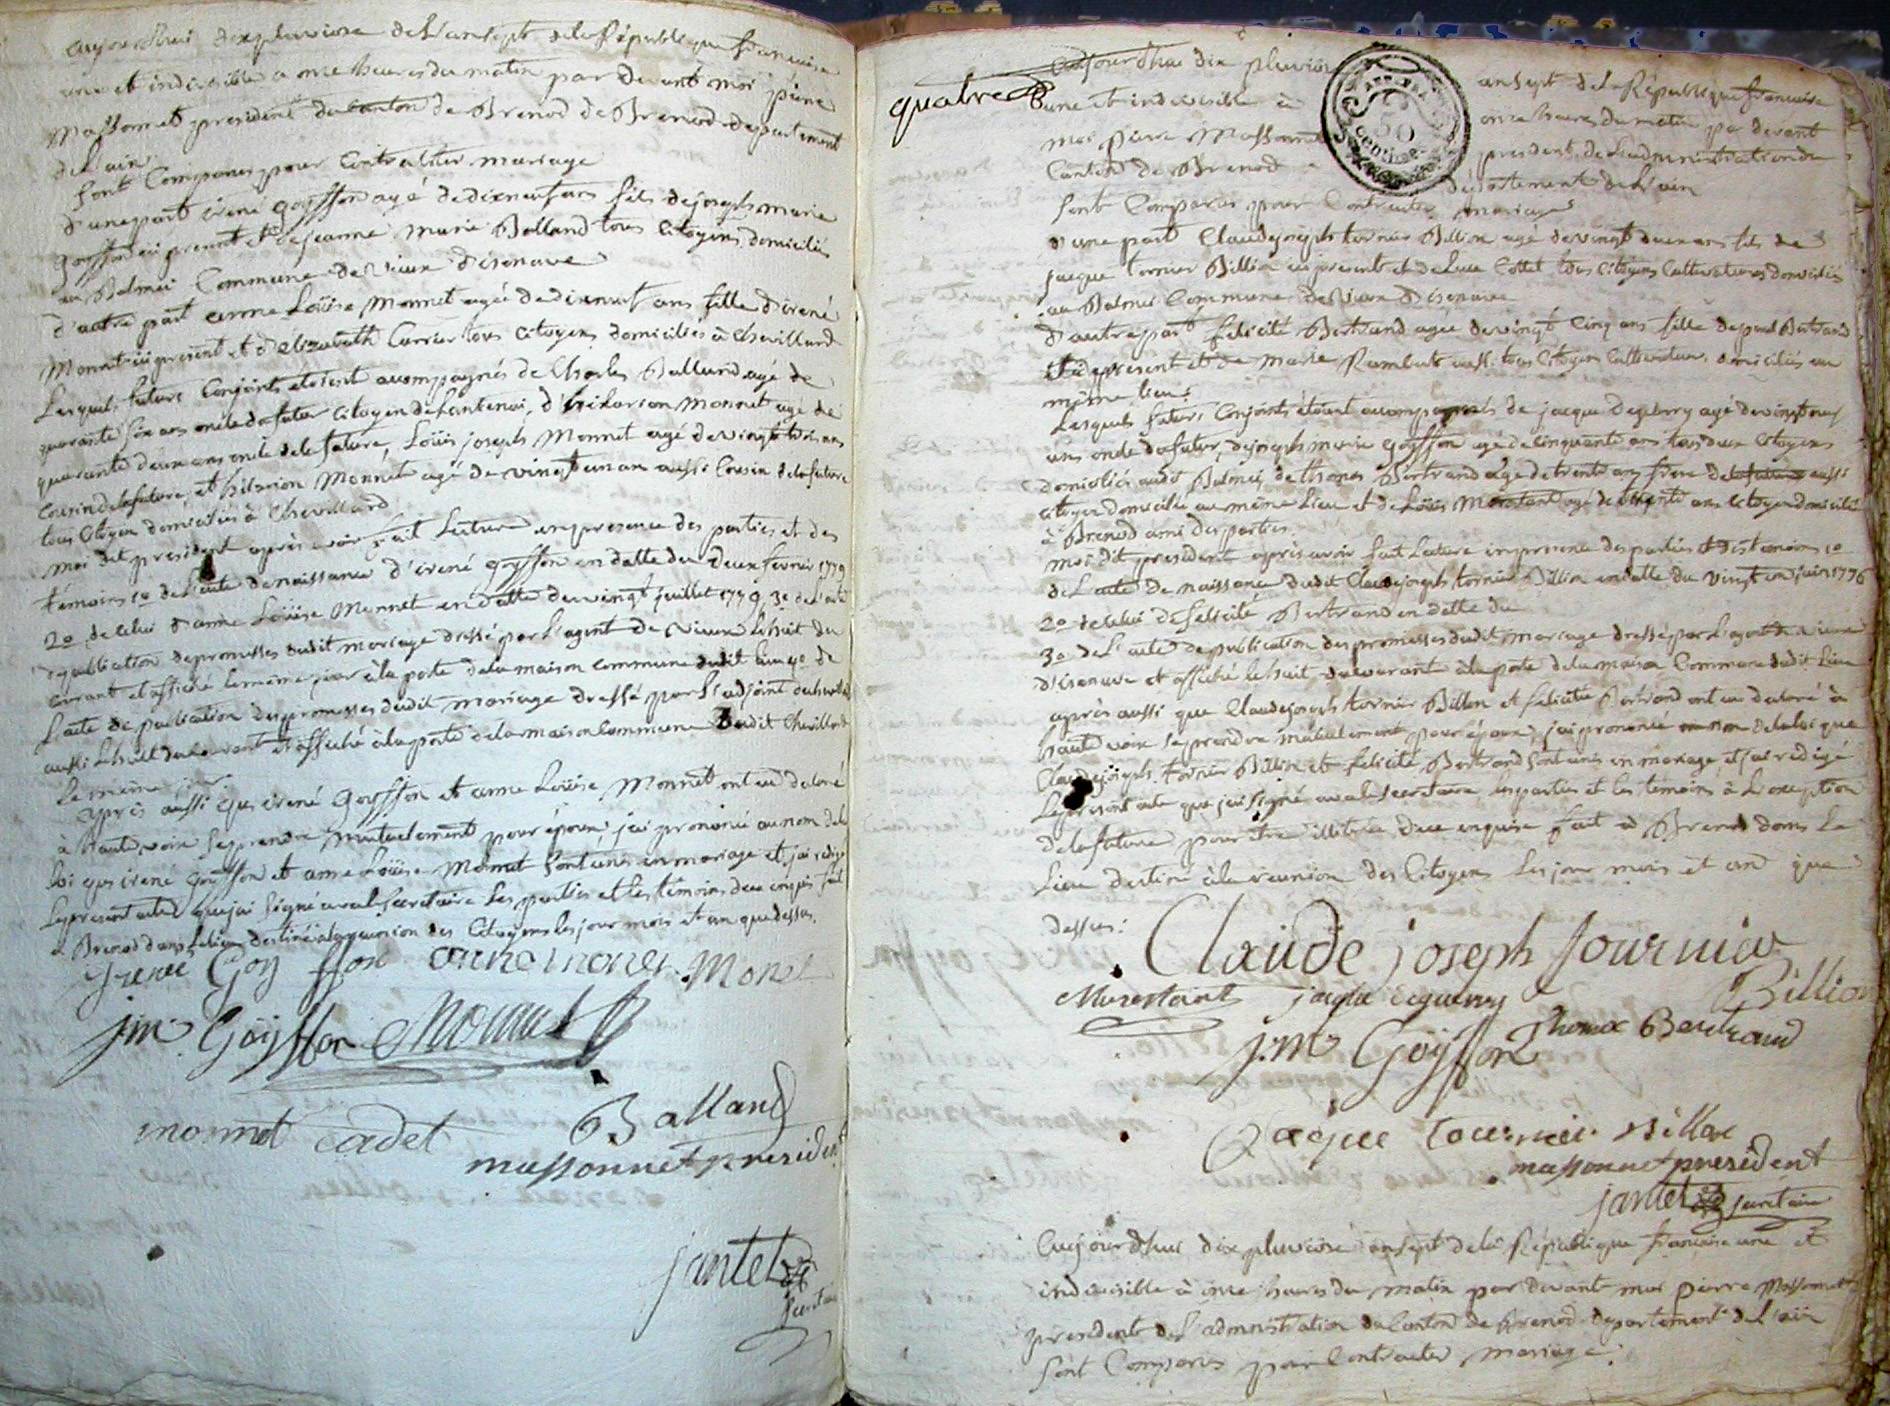 aujourdhui dix pluviose de l'an sept de la République francaise
une et indivisible a onze heures du matin par devant moi pierre
Massonnet president du canton de Brenod de Brenod departement
de L'ain
sont Comparus pour Contracter mariage
d'une part irené goyffon agé de dixneuf ans fils de joseph marie
goyffon ici present et de jeanne marie Balland tous citoyens domiciliés
au Balmei Commune de Vieux d'isenave
d'autre part anne Loüise Monnet agée de dixneuf ans fille d'irené
Monnet ici present et d'Elizabeth Carrier tous citoyens domiciliés à Chevillard
Lesquels futurs Conjoints etoient accompagnés de Charles Balland agé de
quarante six ans oncle du futur citoyen de Lantenai, d'hilarion Monnet agé de
quarante deux ans oncle de la future, Loüis joseph Monnet agé de vingt trois ans
cousin de la future, et hilarion Monnet agé de vingt un an aussi Cousin de la future
tous Citoyen domiciliés à Chevillard
moi dit president après avoir fait Lecture en presence des parties et des
témoins 1º de L'acte de naissance d'irené goyffon en datte du deux fevrier 1779
2º de celui d'anne Loüise Monnet en datte du vingt juillet 1779 3º de l'acte
de publication de promesses dudit mariage dressé par L'agent de vieux le huit du
courant et affiché le meme jour à la porte de la maison commune dudit lieu 4º de
L'acte de publication des promesses dudit mariage dressé par L'adjoint de Chevillard
aussi le huit du courant et affiché à la porte de la maison Commune dudit Chevillard
Le même jour
après aussi que irené Goyffon et anne Loüise Monnet ont eu declaré
à haute voix se prendre mutuelement pour époux j'ai prononcé au nom de la
loi que irené Goyffon et anne Loüise Monnet sont unis en mariage et j'ai redigé
le present acte que j'ai signé avec le secretaire les parties et les témoins de ce enquis fait
à Brenod dans le lieu destiné à la reunion des Citoyens les jour mois et an que dessus.
Irenee Goy ffon anne monet. Monet
j.m. Goÿffon Monnet
monnet cadet Balland
massonnet president
jantet
secretaire
quatre
aujourdhui dix pluviose an sept de la République francaise
une et indivisible à onze heures du matin par devant
moi pierre Massonnet president de L'administration du
Canton de Brenod departement de L'ain
50
Centimes
sont Comparus pour Contracter mariage
d'une part Claude joseph tornier Billion agé de vingt deux ans fils de
jacque tornier Billion ici present et de Luce Cottet tous citoyens Cultivateurs domiciliés
au Balmei Commune de Vieux D'isenave
d'autre part felicité Bertrand agee de vingt Cinq ans fille de paul Bertrand
ici present et de marie Rambert aussi tous Citoyens Cultivateurs domiciliés au
même lieu.
Lesquels futurs Conjoints étoient accompagnés de jacque Deguerry agé de vingt neuf
ans oncle du futur, de joseph marie goyffon agé de cinquante ans tous deux Citoyens
domiciliés audit Balmei, de thomas Bertrand agé de trente ans frere de la future aussi
citoyen domicilié au même Lieu et de Loüis Morestant agé de trente ans Citoyen domicilié
à Brenod ami des parties
moi dit president après avoir fait Lecture en presence des parties et des temoins 1º
de L'acte de naissance dudit Claude joseph tornier Billion en datte du vingt un juin 1776
2º de celui de felicité Bertrand en datte du
3º de L'acte de publication des promesses dudit mariage dressé par L'agent de vieux
d'isenave et affiché le huit du courant à la porte de la maison Commune dudit Lieu
après aussi que Claude joseph tornier Billion et felicité Bertrand ont eu declaré à
haute voix se prendre mutuelement pour époux, j'ai prononcé au nom de la loi que
Claude joseph tornier Billion et felicité Bertrand sont unis en mariage et j'ai redigé
Le present acte que j'ai signé avec le Secretaire les parties et les témoins à L'exception
de la future pour être illitérée de ce enquise fait à Brenod dans Le
Lieu destiné à la reunion des Citoyens Les jour mois et an que
dessus:
Claude joseph tournier
Billion
Morestant jaque deguerry
j.m. Goÿffon Thomas Bertrand
Jaque tournier Billon
massonnet president
jantet secretaire
Aujourdhui dix pluviose an sept de la République francaise une et
indivisible à onze heures du matin par devant moi pierre Massonnet
president de L'administration du Canton de Brenod departement de L'ain
sont Comparus pour Contracter mariage.